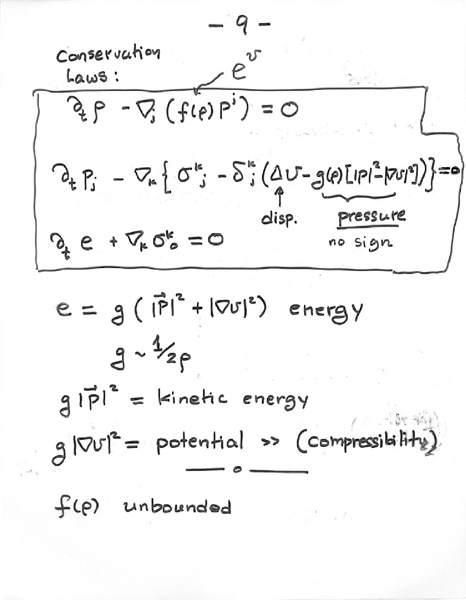 - 9 -
Conservation
Laws :
e^v
∂_t ρ - ∇_j (f(ρ) p^j) = 0
∂_t p_j - ∇_k { σ^k_j - δ^k_j (Δv - g(ρ)[|p|²-|∇v|²])} = 0
disp. pressure
no sign
∂_t e + ∇_k σ^k_0 = 0
e = g ( |p⃗|² + |∇v|² ) energy
g ~ 1/2ρ
g |p⃗|² = kinetic energy
g |∇v|² = potential >> (compressibility)
— o —
f(ρ) unbounded